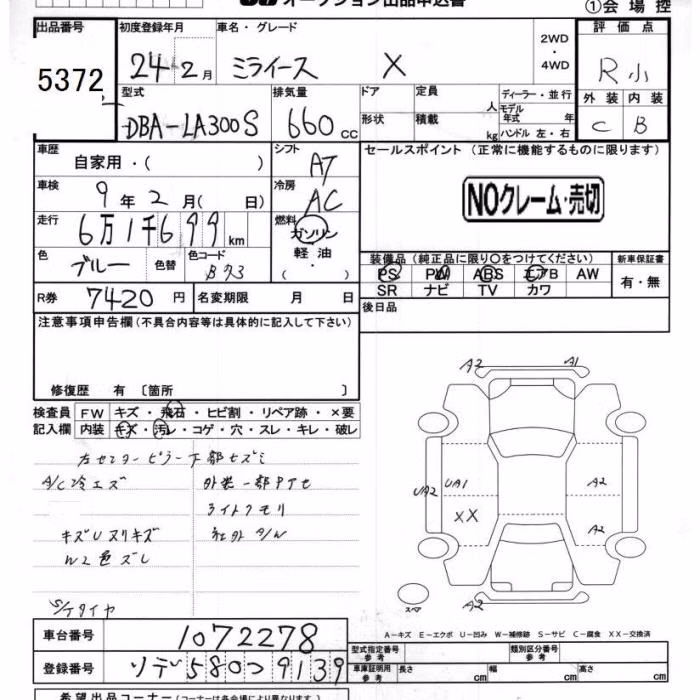 オークション出品申込書
①会場控
出品番号
5372
初度登録年月
24 2月
車名・グレード
ミライース X
2WD
・
4WD
評価点
R小
外装 内装
C B
型式
DBA-LA300S
排気量
660 cc
ドア
形状
定員 人
積載 kg
ディーラー・並行
モデル
年式 年
ハンドル 左・右
車歴
自家用・( )
シフト
AT
車検
9年2月( 日)
冷房
AC
走行
6万1千699km
燃料
ガソリン
軽油
( ・ )
色
ブルー
色替
色コード
B73
R券
7420円
名変期限 月 日
セールスポイント(正常に機能するものに限ります)
NOクレーム・売切
装備品(純正品に限り〇をつけてください)
PS PW ABS エアB AW
SR ナビ TV カワ
新車保証書
有・無
後日品
注意事項申告欄(不具合内容等は具体的に記入して下さい)
修復歴 有〔箇所 〕
検査員
記入欄
FW キズ・飛石・ヒビ割・リペア跡・×要
内装 キズ・汚レ・コゲ・穴・スレ・キレ・破レ
左センターピラー下部キズミ
A/C冷エズ
外装一部PTセ
ライトクモリ
キズUヌリキズ
社外A/W
W2色ズレ
S/Tタイヤ
A2 A1
UA2 UA1 A2
XX A2
A2
スペア
A-キズ E-エクボ U-凹み W-補修跡 S-サビ C-腐食 XX-交換済
車台番号
1072278
登録番号
ソデ 580つ9139
型式指定番号
参考
類別区分番号
参考
車庫証明用
参考
長さ cm 幅 cm 高さ cm
希望出品コーナー(コーナーは各会場により異なります)